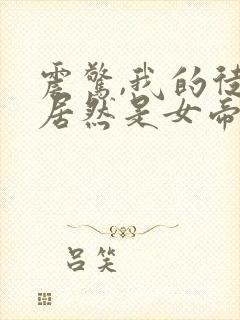 震惊,我的徒
居然是女帝
吕笑